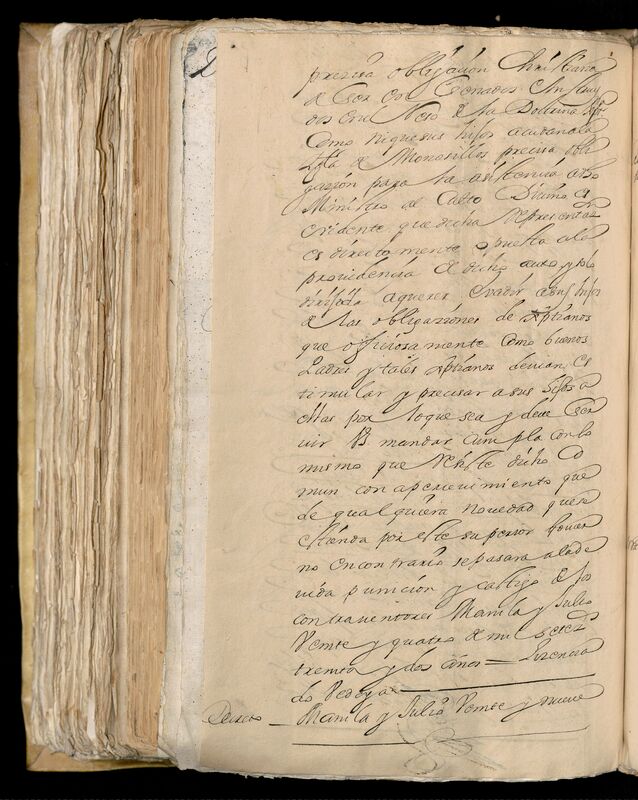 precisa obligazion Christiana
de ser los Criados Instrui
dos en el Rezo de la Doctrina
Como ni que sus hijos acudan ala
de Monasillos precisa obli
gazion para la asistencia
Ministro al Culto Divino es
evidente que dicha Representaz
es directamente opuesta ala
providencia de dicho auto y solo
dirigida a querer evadir a sus hijos
de las obligaziones de Xptianos
que officiosamente como buenos
Padres y tales Xptianos devian es
timular y precisar a sus hijos a
ellas por lo que sea y deve ser
vir VS. mandar cumpla con lo
mismo que Resiste dicho Co
mun con apercevimiento que
de qualquiera novedad que se
estienda por este superior Govier
no en contrario se pasara a la de
vida punicion y castigo de los
contraventores Manila y Julio
Veinte y quatro de mil setez
treinta y dos años = Lizencia
do Vedoya =
Decreto Manila y Julio Veinte y nueve